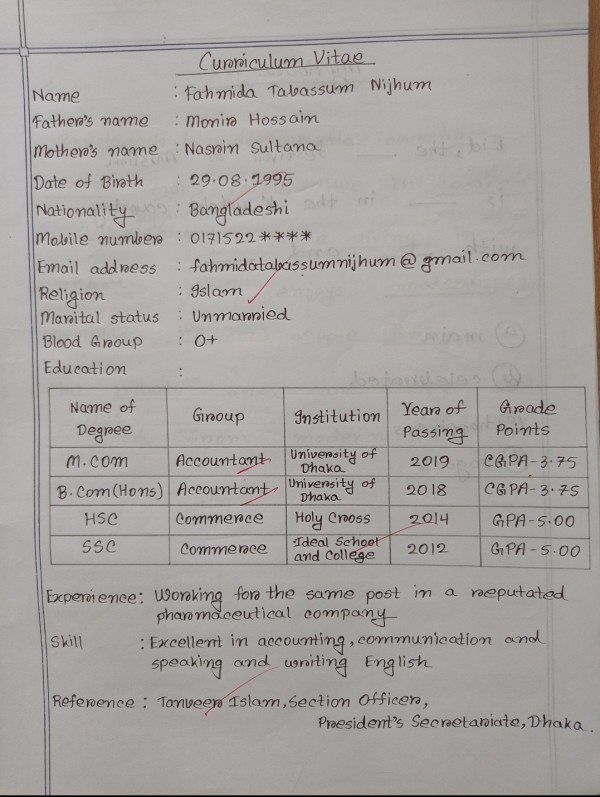 Curriculum Vitae
Name : Fahmida Tabassum Nijhum
Father's name : Monir Hossain
Mother's name : Nasrin Sultana
Date of Birth : 29.08.1995
Nationality : Bangladeshi
Mobile number : 0171522****
Email address : fahmidatabassumnijhum@gmail.com
Religion : Islam
Marital status : Unmarried
Blood Group : O+
Education :
Name of Degree Group Institution Year of Passing Grade Points
M.COM Accountant University of Dhaka 2019 CGPA-3.75
B.Com(Hons) Accountant University of Dhaka 2018 CGPA-3.75
HSC Commerce Holy Cross 2014 GPA-5.00
SSC Commerce Ideal School and College 2012 GPA-5.00
Experience: Working for the same post in a reputated
pharmaceutical company
Skill : Excellent in accounting, communication and
speaking and writing English
Reference : Tanveer Islam, Section Officer,
President's Secretariate, Dhaka.